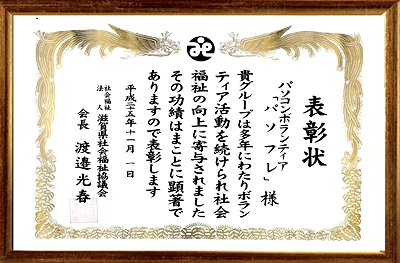 表彰状
パソコンボランティア
「パソフレ」様
貴グループは多年にわたりボラン
ティア活動を続けられ社会
福祉の向上に寄与されました
その功績はまことに顕著で
ありますので表彰します
平成二十五年十一月一日
社会福祉法人 滋賀県社会福祉協議会
会長 渡邉光春